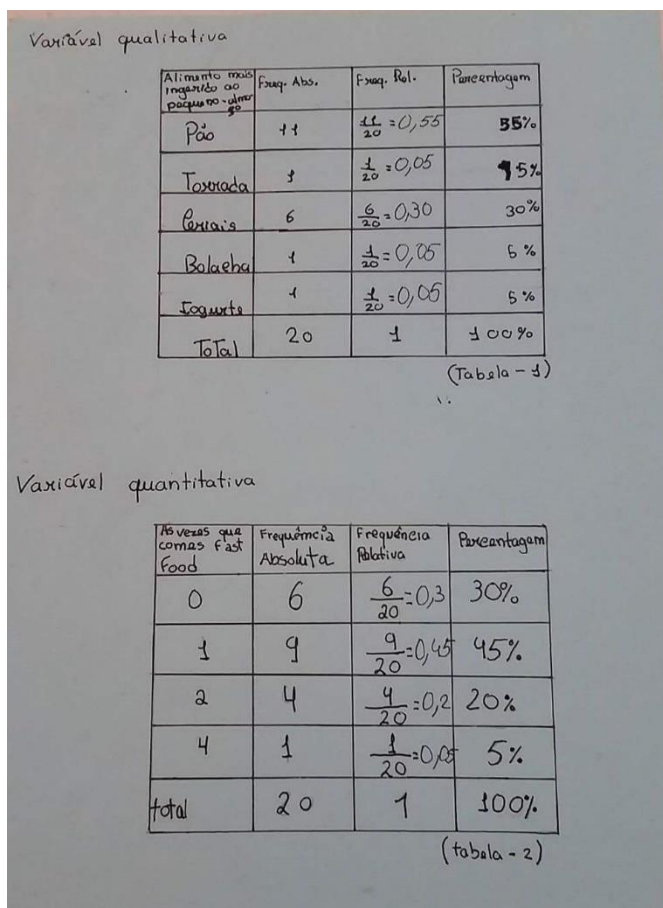 Variável qualitativa
Alimento mais ingerido ao pequeno-almoço Freq. Abs. Freq. Rel. Percentagem
Pão 11 11/20 = 0,55 55%
Torrada 1 1/20 = 0,05 5%
Ceriais 6 6/20 = 0,30 30%
Bolacha 1 1/20 = 0,05 5%
Iogurte 1 1/20 = 0,05 5%
Total 20 1 100%
(Tabela - 1)
Variável quantitativa
As vezes que comes Fast Food Frequência Absoluta Frequência Relativa Percentagem
0 6 6/20 = 0,3 30%
1 9 9/20 = 0,45 45%
2 4 4/20 = 0,2 20%
4 1 1/20 = 0,05 5%
total 20 1 100%
(tabela - 2)